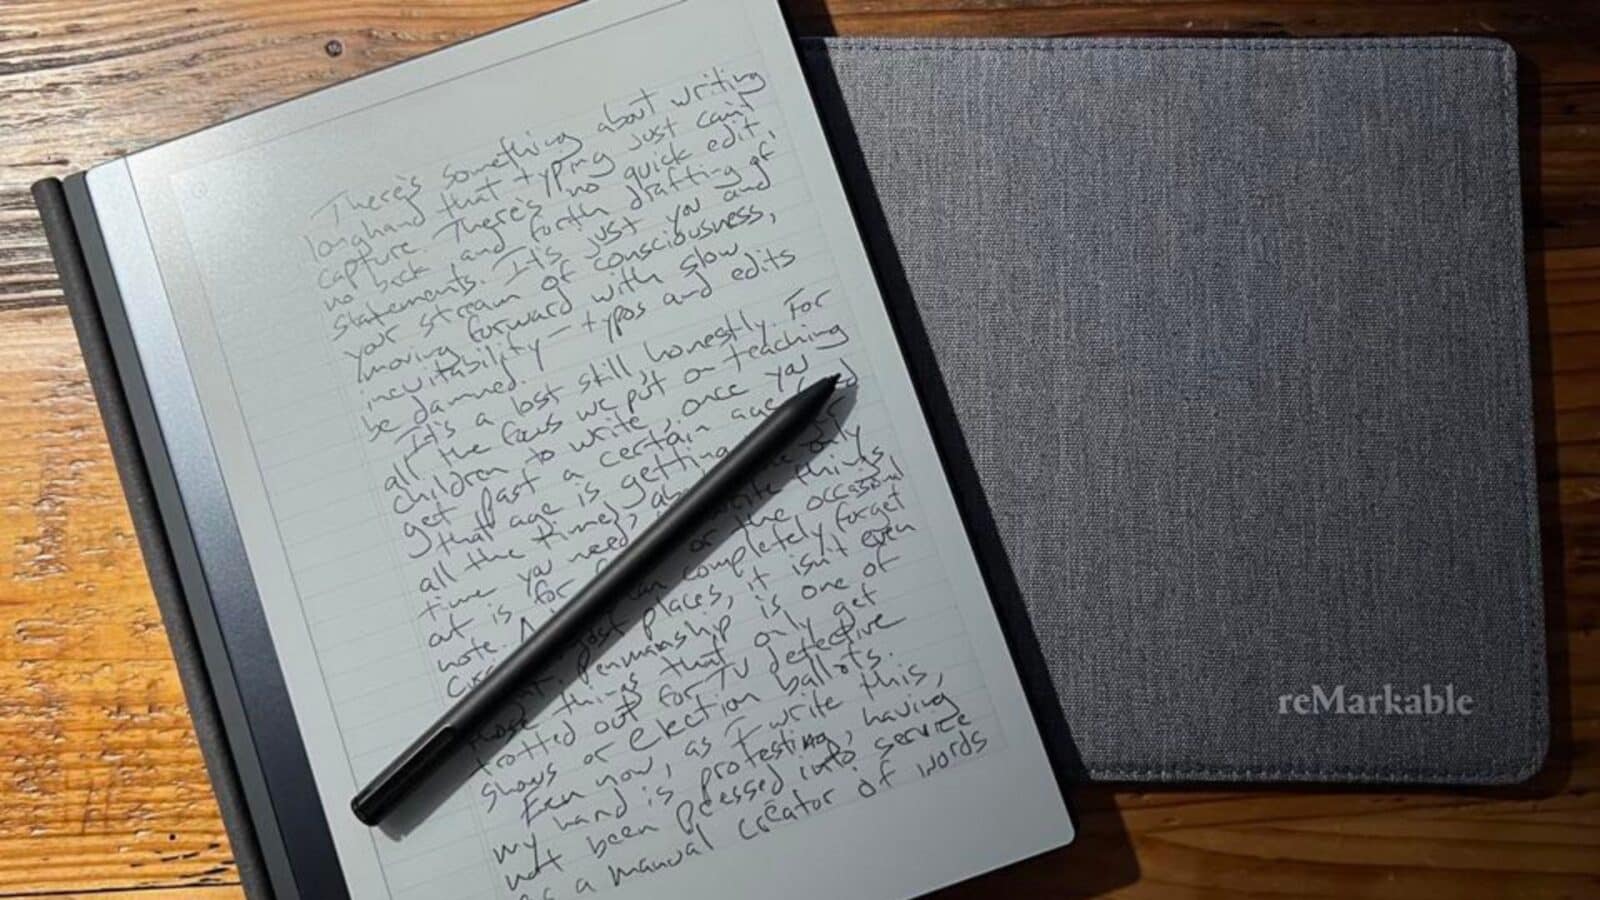 There's something about writing
longhand that typing just can't
capture. There's no quick edit,
no back and forth drafting of
statements. It's just you and
your stream of consciousness,
moving forward with slow
inevitability — typos and edits
be damned.
It's a lost still, honestly. For
all the focus we put on teaching
children to write, once you
get past a certain age
that age is getting
all the time), only
time you need write things
out is for or the occasional
note. can completely forget
places, it isn't even
penmanship is one of
those things that only get
trotted out for TV detective
shows or election ballots.
Even now, as I write this,
my hand is protesting, having
not been pressed into service
as a manual creator of words
reMarkable